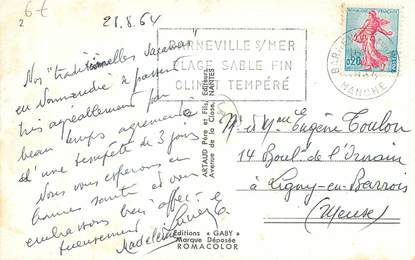 2 6f
21.8.64
BARNEVILLE S/MER
PLAGE SABLE FIN
CLIMAT TEMPÉRÉ
0,20
MANCHE
Nos "traditionnelles vacances"
en Normandie se passent
très agréablement par
beau temps agrémenté
d'une tempête de 3 jours
Nous vous espérons en
bonne santé et vous
embrassons bien affec-
tueusement
Madeleine
ARTAUD Père et Fils, Éditeurs
Avenue de la Close, NANTES
Mr et Mme Eugène Toulon
14 Boul. de l'Ornain
à Ligny-en-Barrois
(Meuse)
Editions « GABY »
Marque Déposée
ROMACOLOR